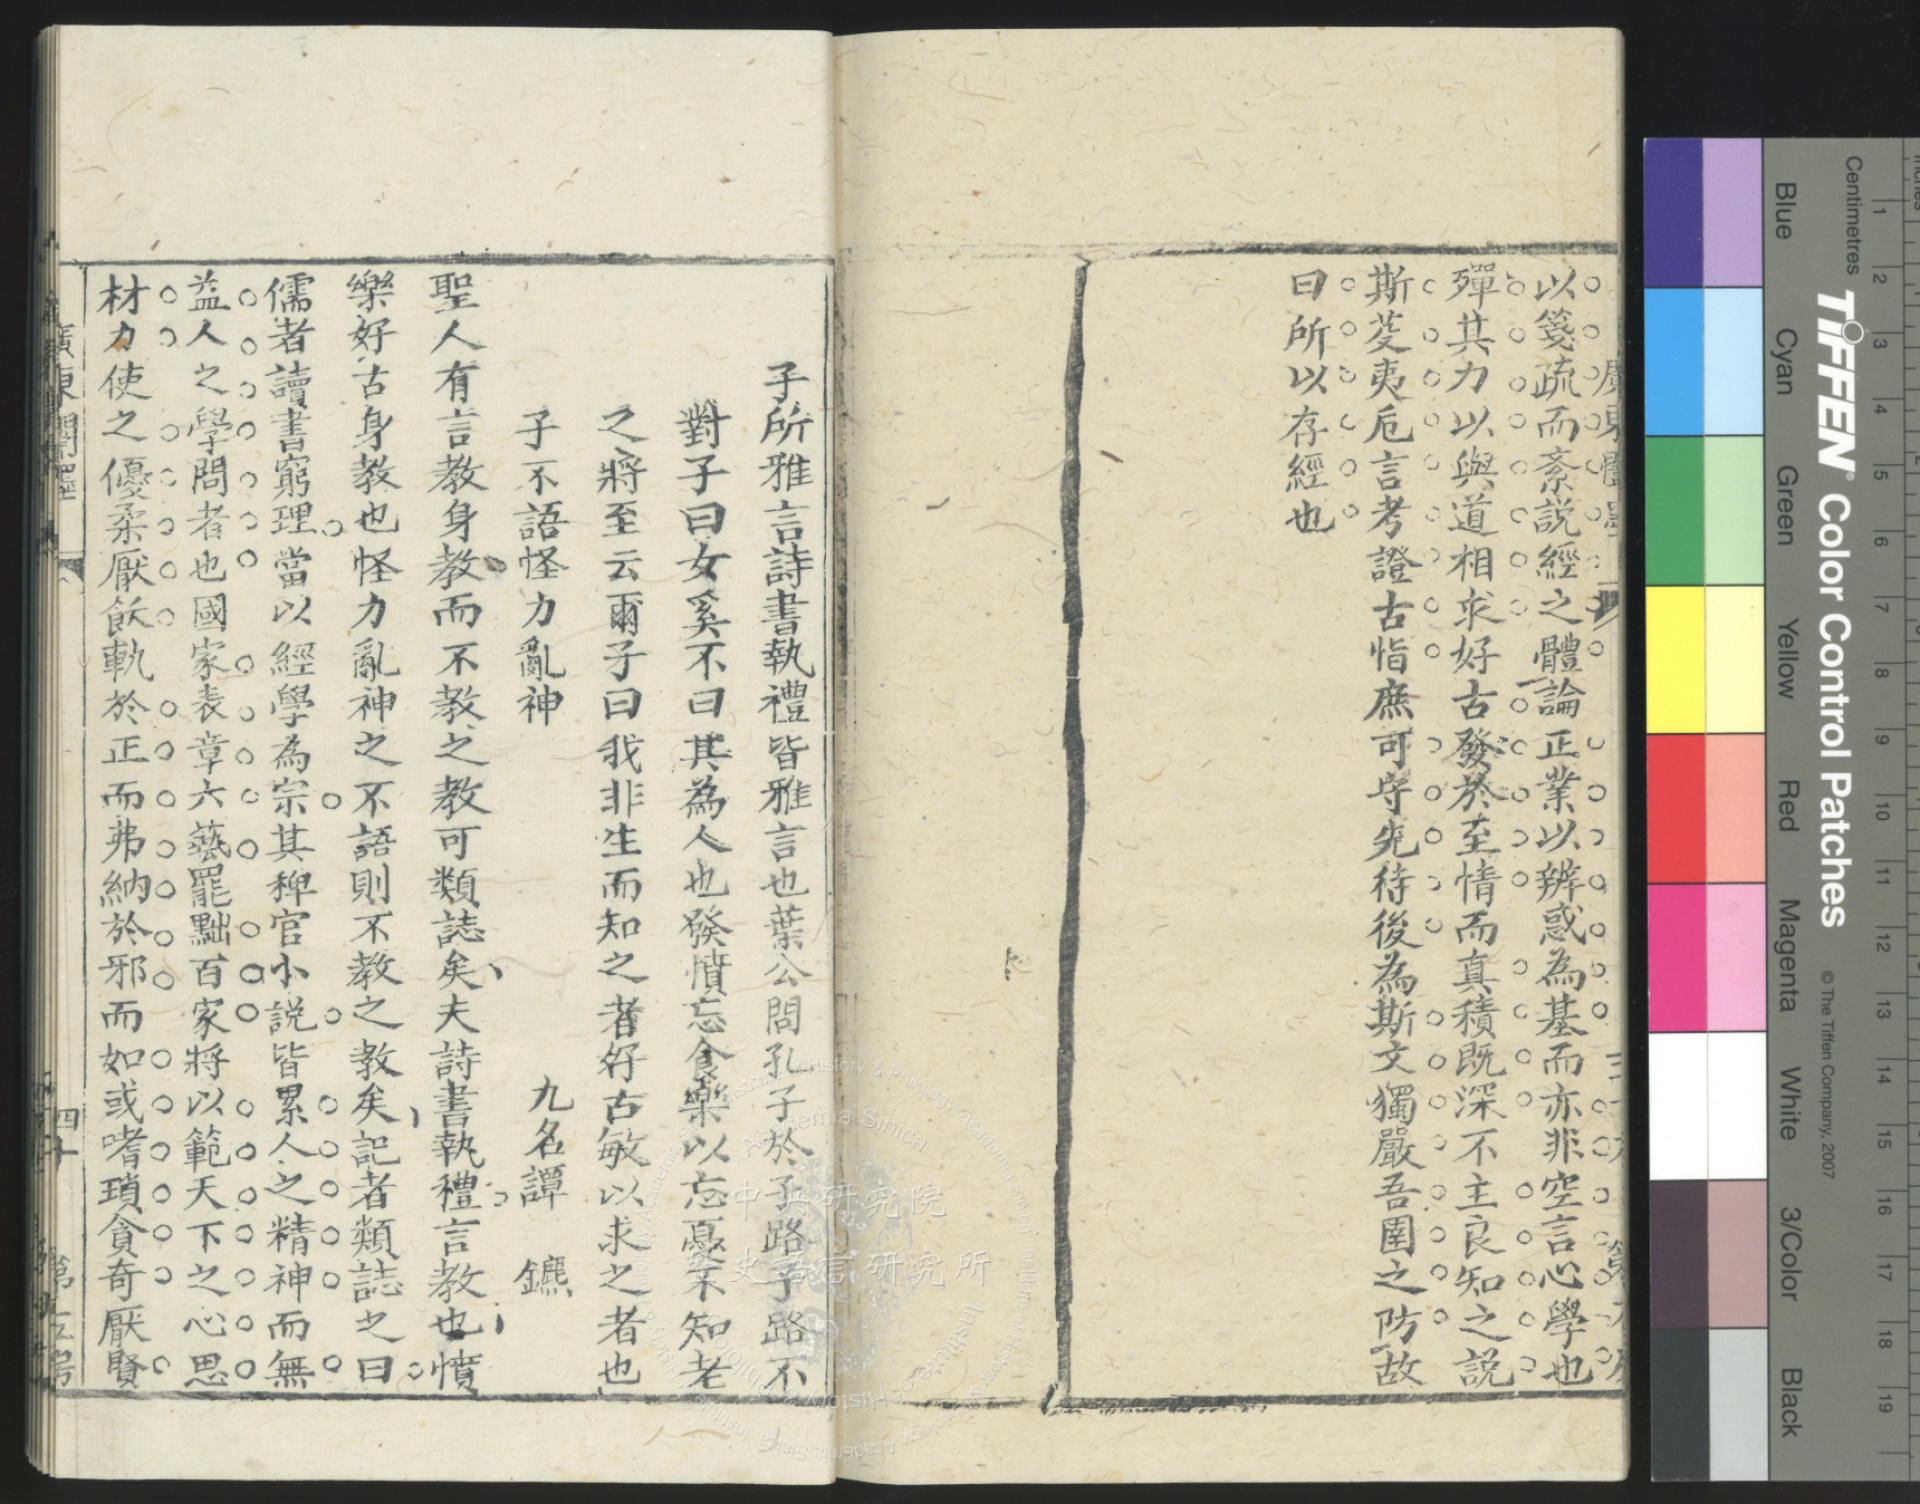 以箋疏而紊説經之體論正業以辨惑為基而亦非空言心學也
殫其力以與道相求好古發於至情而真積既深不主良知之説
斯芟夷卮言考證古㫖庶可守先待後為斯文獨嚴吾圉之防故
曰所以存經也
子所雅言詩書執禮皆雅言也葉公問孔子於子路子路不
對子曰女奚不曰其為人也發憤忘食樂以忘憂不知老
之將至云爾子曰我非生而知之者好古敏以求之者也
子不語怪力亂神
九名譚 鑣
聖人有言教身教而不教之教可類誌矣夫詩書執禮言教也憤
樂好古身教也怪力亂神之不語則不教之教矣記者類誌之曰
儒者讀書窮理當以經學為宗其稗官小説皆累人之精神而無
益人之學問者也國家表章六藝罷黜百家將以範天下之心思
材力使之優柔厭飫軌於正而弗納於邪而如或嗜瑣貪奇厭賢
廣東闈墨
四十
Centimetres
TIFFEN® Color Control Patches
© The Tiffen Company, 2007
Blue
Cyan
Green
Yellow
Red
Magenta
White
3/Color
Black
1
2
3
4
5
6
7
8
9
10
11
12
13
14
15
16
17
18
19
中央研究院
史語言研究所
Academia Sinica